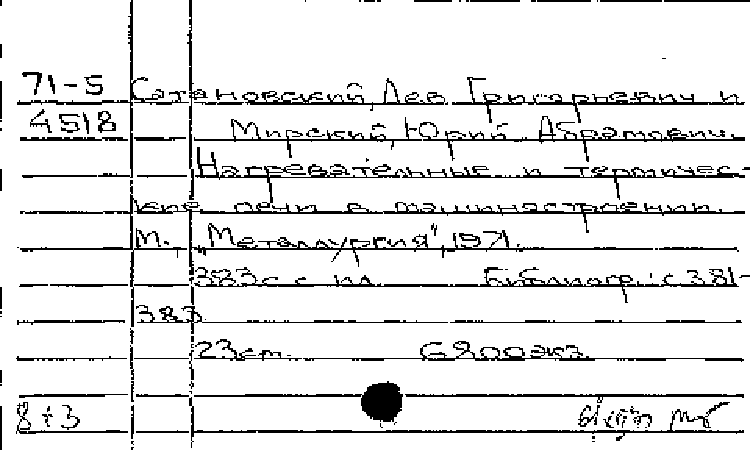 71-5 Сатановский, Лев Григорьевич и
4518 Мирский, Юрий Абрамович.
Нагревательные и термичес-
кие печи в машиностроении.
М., „Металлургия", 1971.
383 с. с ил. Библиогр.: с 381-
383
23 см. 6900 экз.
8+3